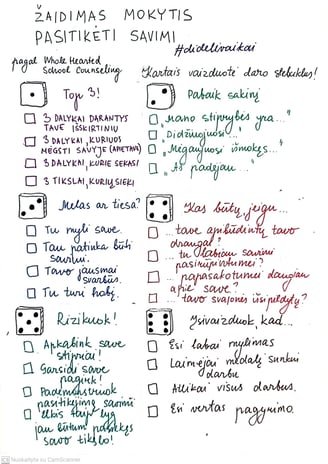 ŽAIDIMAS MOKYTIS
PASITIKĖTI SAVIMI
#didelivaikai
pagal Whole Hearted
School Counseling
Kartais vaizduotė daro stebuklus!
Top 3!
3 DALYKAI DARANTYS
TAVE IŠSKIRTINIU
3 DALYKAI, KURIUOS
MĖGSTI SAVYJE (APIE TAVE)
3 DALYKAI, KURIE SEKASI
3 TIKSLAI, KURIŲ SIEKI
Pabaik sakinį
"mano stiprybės yra..."
"Didžiuojuosi..."
"Mėgaujuosi išmokęs..."
"Aš padėjau..."
Melas ar tiesa?
Tu myli save.
Tau patinka būti
savimi.
Tavo jausmai
svarbūs.
Tu turi hobį.
Kas būtų, jeigu...
...tave apibūdintų tavo
draugai?
...tu labiau savimi
pasitikėtumei?
...papasakotumei daugiau
apie save?
...tavo svajonės išsipildytų?
Rizikuok!
Apkabink save
stipriai!
Garsiai save
pagirk!
Pademonstruok
pasitikėjimą savimi
Elkis taip lyg
jau būtum pasiekęs
savo tikslo!
Įsivaizduok, kad...
Esi labai mylimas
Laimėjai medalį sunkiu
darbu
Atlikai visus darbus.
Esi vertas pagyrimo.
Nuskaityta su CamScanner